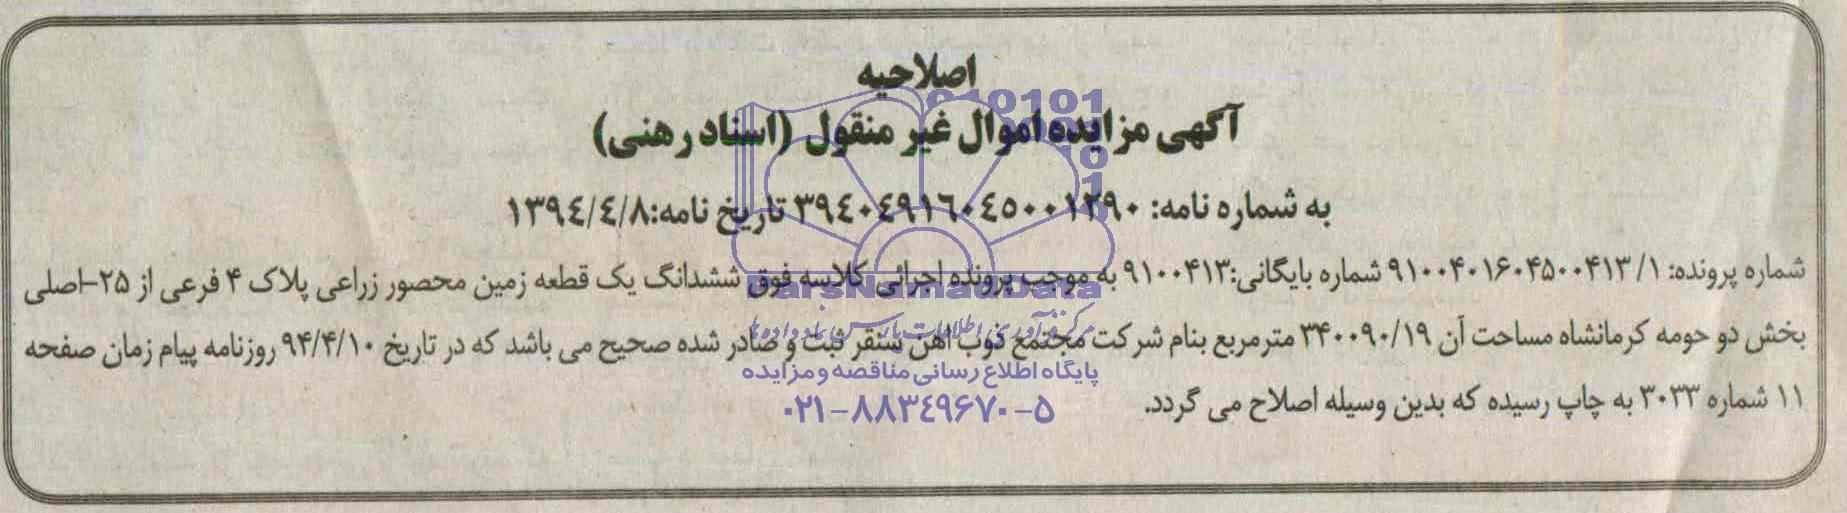 اصلاحیه
آگهی مزایده اموال غیر منقول (اسناد رهنی)
به شماره نامه: ۳۹٤۰٤۹۱٦۰٤٥۰۰۱۲۹۰ تاریخ نامه:۱۳۹٤/٤/۸
شماره پرونده: ۹۱۰۰۴۰۱۶۰۴۵۰۰۴۱۳/۱ شماره بایگانی:۹۱۰۰۴۱۳ به موجب پرونده اجرائی کلاسه فوق ششدانگ یک قطعه زمین محصور زراعی پلاک ۴ فرعی از ۲۵-اصلی
بخش دو حومه کرمانشاه مساحت آن ۳۴۰۰۹۰/۱۹ مترمربع بنام شرکت مجتمع ذوب اهن سنقر ثبت و صادر شده صحیح می باشد که در تاریخ ۹۴/۴/۱۰ روزنامه پیام زمان صفحه
۱۱ شماره ۳۰۳۳ به چاپ رسیده که بدین وسیله اصلاح می گردد.
ParsNamadData
مرکز فرآوری اطلاعات پارس نماد داده ها
پایگاه اطلاع رسانی مناقصه و مزایده
۰۲۱-۸۸۳۴۹۶۷۰-۵